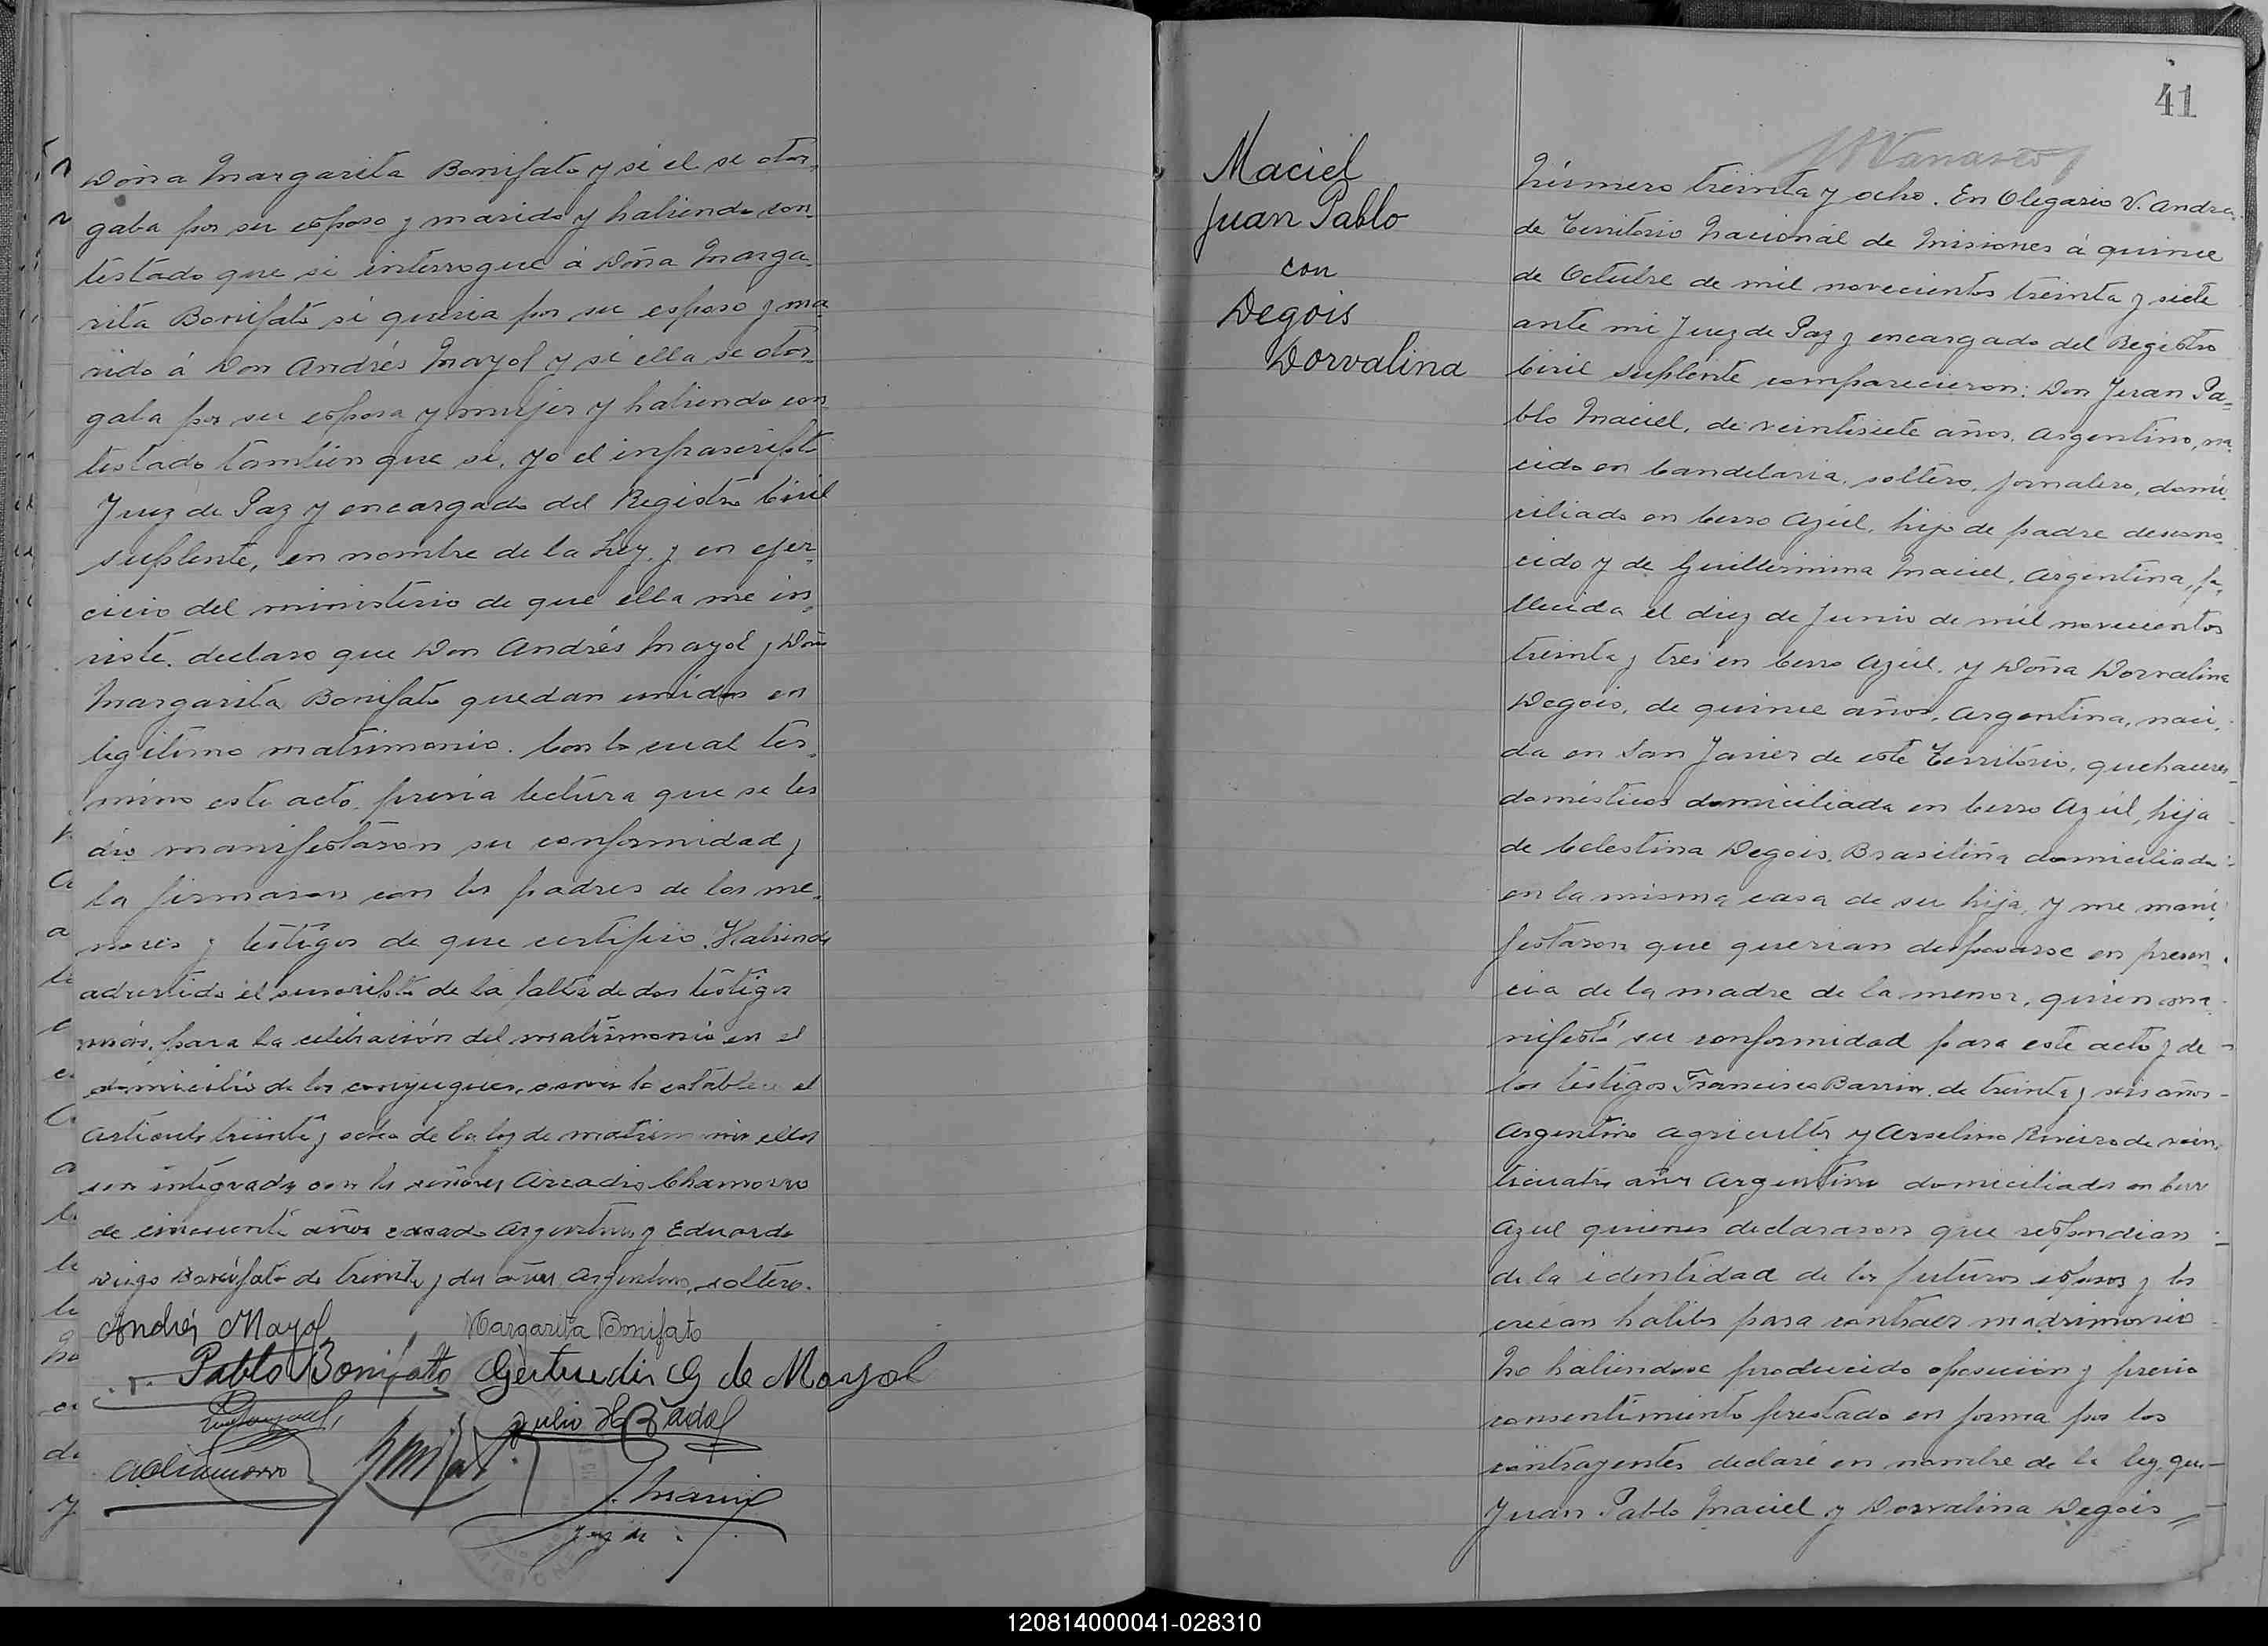 Doña Margarita Bonifato y si el se otor-
gaba por su esposo y marido y habiendo con-
testado que si interrogué á Doña Marga-
rita Bonifato si queria por su esposo y ma-
rido á Don Andrés Mayol y si ella se otor-
gaba por su esposa y mujer y habiendo con-
testado tambien que si, yo el infrascripto
Juez de Paz y encargado del Registro Civil
suplente, en nombre de la Ley y en ejer-
cicio del ministerio de que ella me in-
viste, declaro que Don Andrés Mayol y Doña
Margarita Bonifato quedan unidos en
legitimo matrimonio. Con lo cual ter-
mino este acto, previa lectura que se les
dio manifestaron su conformidad y
la firmaron con los padres de los me-
nores y testigos de que certifico. Habiendo
advertido el suscripto de la falta de dos testigos
más, para la celebración del matrimonio en el
domicilio de los conyugues, como lo establece el
articulo treinta y ocho de la ley de matrimonio ellos
son integrados con los señores Arcadio Chamorro
de cincuenta años casado Argentino y Eduardo
Diego Bonifato de treinta y dos años, Argentino, soltero.
Andrés Mayol Margarita Bonifato
Pablo Bonifatto Gertrudis G de Mayol
Julio H Badal
AChamorro
Juez de
41
Maciel
Juan Pablo
con
Degois
Dorvalina
Número treinta y ocho. En Olegario V. Andra-
de Territorio Nacional de Misiones á quince
de Octubre de mil novecientos treinta y siete
ante mi Juez de Paz y encargado del Registro
Civil suplente comparecieron: Don Juan Pa-
blo Maciel, de veintisiete años, Argentino, na-
cido en Candelaria, soltero, jornalero, domi-
ciliado en Cerro Azúl, hijo de padre descono-
cido y de Guillermina Maciel, Argentina, fa-
llecida el diez de Junio de mil novecientos
treinta y tres en Cerro Azúl, y Doña Dorvalina
Degois, de quince años, Argentina, naci-
da en San Javier de este Territorio, quehaceres
domésticos domiciliada en Cerro Azúl, hija
de Celestina Degois, Brasileña domiciliada
en la misma casa de su hija, y me mani-
festaron que querian desposarse en presen-
cia de la madre de la menor, quien ma-
nifestó su conformidad para este acto y de
los testigos Francisco Barrios de treinta y seis años
Argentino agricultor y Arselino Riveiro de vein-
ticuatro años Argentino domiciliados en Cerro
Azul quienes declararon que respondian
de la identidad de los futuros esposos y los
creian habiles para contraer madrimonio
No habiendose producido oposicion y previo
consentimiento prestado en forma por los
contrayentes declaré en nombre de la ley, que
Juan Pablo Maciel y Dorvalina Degois
120814000041-028310